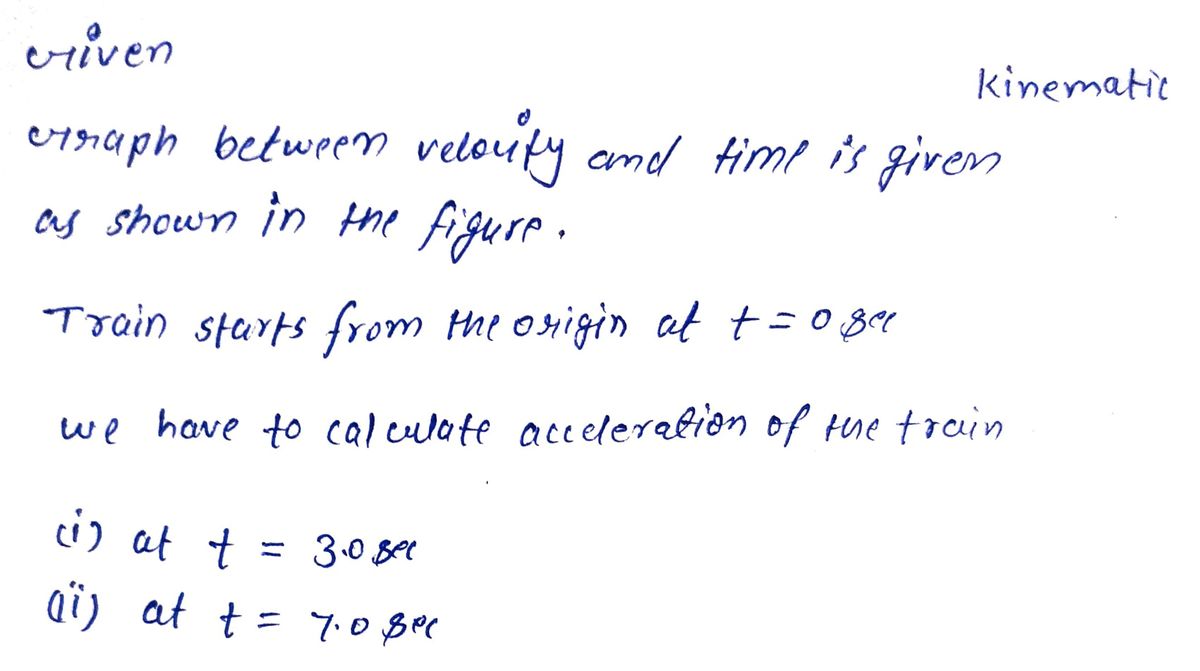 Given
Kinematic
Graph between velocity and time is given
as shown in the figure.
Train starts from the origin at t = 0 sec
we have to calculate acceleration of the train
(i) at t = 3.0 sec
(ii) at t = 7.0 sec